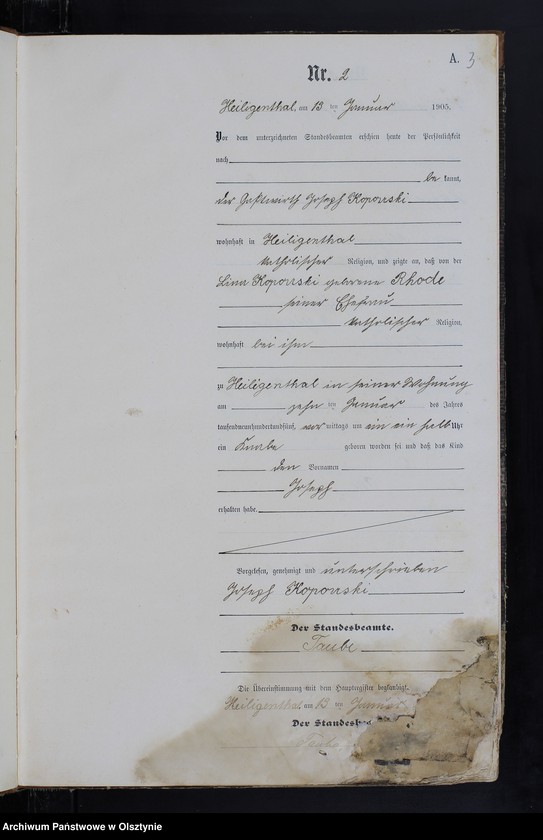 A. 3
Nr. 2
Heiligenthal, am 13 ten Januar 1905.
Vor dem unterzeichneten Standesbeamten erschien heute der Persönlichkeit
nach
be kannt,
der Gastwirth Joseph Kopowski
wohnhaft in Heiligenthal
katholischer Religion, und zeigte an, daß von der
Lina Kopowski geborene Rhode
seiner Ehefrau
katholischer Religion,
wohnhaft bei ihm
zu Heiligenthal in seiner Wohnung
am zehn ten Januar des Jahres
tausendneunhundertundfünf, vor mittags um ein ein halb Uhr
ein Knabe geboren worden sei und daß das Kind
den Vornamen
Joseph
erhalten habe.
Vorgelesen, genehmigt und unterschrieben
Joseph Kopowski
Der Standesbeamte.
Taube
Die Übereinstimmung mit dem Hauptregister beglaubigt.
Heiligenthal, am 13 ten Januar
Der Standesbea
Archiwum Państwowe w Olsztynie